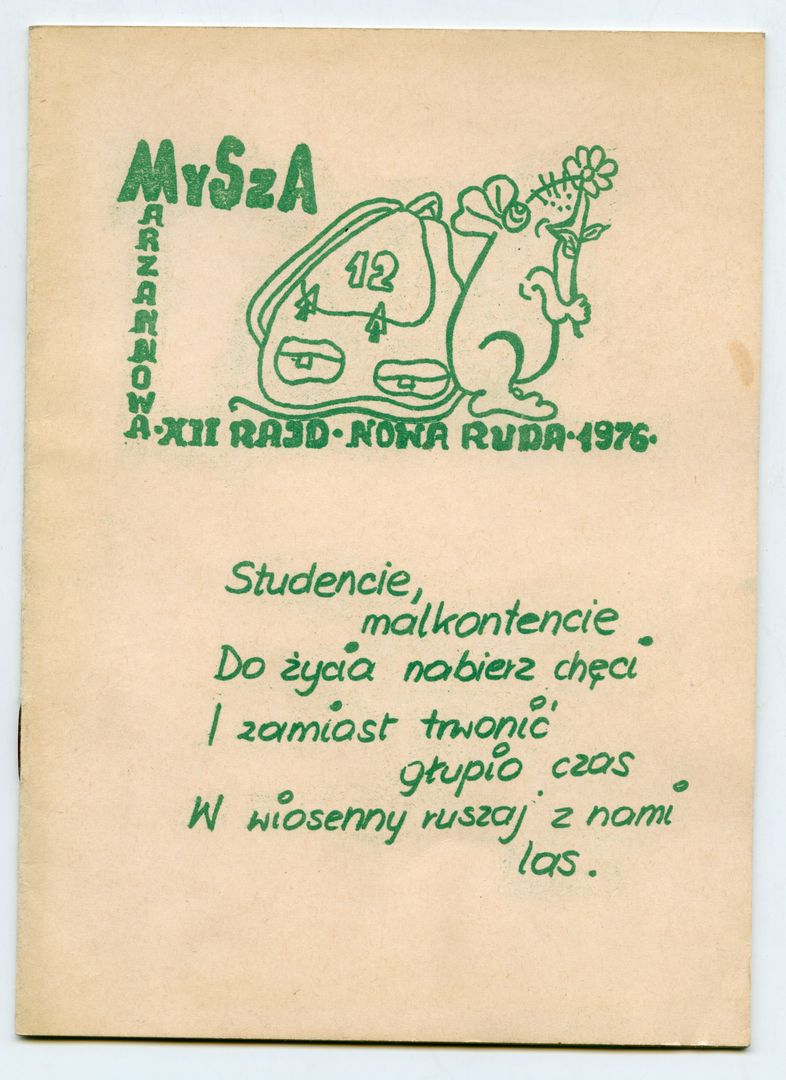 MYSZA
MARZANNOWA
12
·XII RAJD·NOWA RUDA·1976·
Studencie,
malkontencie
Do życia nabierz chęci
I zamiast trwonić
głupio czas
W wiosenny ruszaj z nami
las.